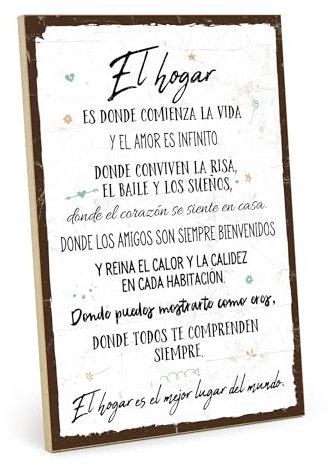 El hogar
ES DONDE COMIENZA LA VIDA
Y EL AMOR ES INFINITO.
DONDE CONVIVEN LA RISA,
EL BAILE Y LOS SUEÑOS,
donde el corazón se siente en casa.
DONDE LOS AMIGOS SON SIEMPRE BIENVENIDOS
Y REINA EL CALOR Y LA CALIDEZ
EN CADA HABITACIÓN.
Donde puedes mostrarte como eres,
DONDE TODOS TE COMPRENDEN
SIEMPRE.
El hogar es el mejor lugar del mundo.